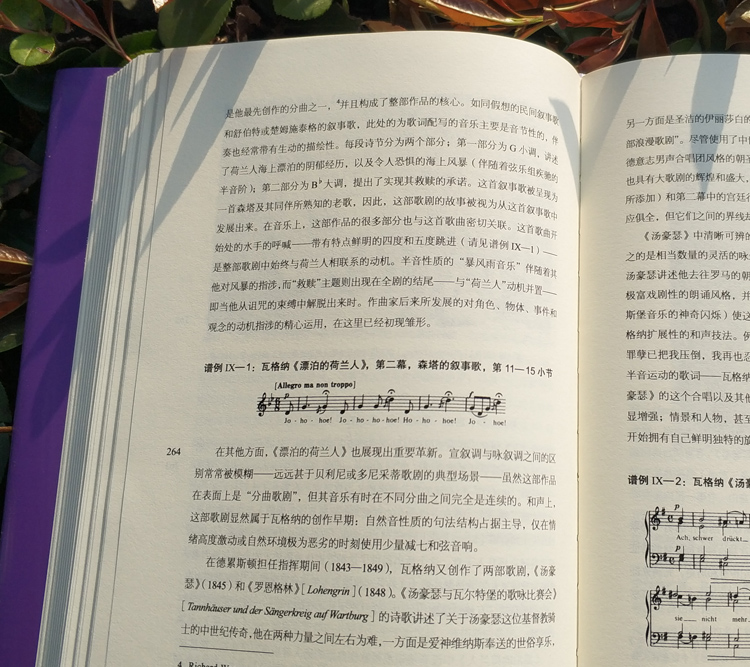 是他最先创作的分曲之一，⁴并且构成了整部作品的核心。如同假想的民间叙事歌
和舒伯特或楚姆施泰格的叙事歌，此处的为歌词配写的音乐主要是音节性的，伴
奏也经常带有生动的描绘性。每段诗节分为两个部分；第一部分为 G 小调，讲述
了荷兰人海上漂泊的阴郁经历，以及令人恐惧的海上风暴（伴随着弦乐组疾驰的
半音阶）；第二部分为 B♭大调，提出了实现其救赎的承诺。这首叙事歌被呈现为
一首森塔及其同伴所熟知的老歌，因此，这部歌剧的故事被视为从这首叙事歌中
发展出来。在音乐上，这部作品的很多部分也与这首歌曲密切关联。这首歌曲开
始处的水手的呼喊——带有特点鲜明的四度和五度跳进（请见谱例 IX—1）——
是整部歌剧中始终与荷兰人相联系的动机。半音性质的“暴风雨音乐”伴随着其
他对风暴的指涉，而“救赎”主题则出现在全剧的结尾——与“荷兰人”动机并置——
即当他从诅咒的束缚中解脱出来时。作曲家后来所发展的对角色、物体、事件和
观念的动机指涉的精心运用，在这里已经初现雏形。
谱例 IX—1：瓦格纳《漂泊的荷兰人》，第二幕，森塔的叙事歌，第 11—15 小节
[Allegro ma non troppo]
p
Jo - ho - hoe! Jo - ho - ho - hoe! Ho - ho - hoe! Jo - hoe!
264
在其他方面，《漂泊的荷兰人》也展现出重要革新。宣叙调与咏叙调之间的区
别常常被模糊——远远甚于贝利尼或多尼采蒂歌剧的典型场景——虽然这部作品
在表面上是“分曲歌剧”，但其音乐有时在不同分曲之间完全是连续的。和声上，
这部歌剧显然属于瓦格纳的创作早期：自然音性质的句法结构占据主导，仅在情
绪高度激动或自然环境极为恶劣的时刻使用少量减七和弦音响。
在德累斯顿担任指挥期间（1843—1849），瓦格纳又创作了两部歌剧，《汤豪
瑟》（1845）和《罗恩格林》[Lohengrin]（1848）。《汤豪瑟与瓦尔特堡的歌咏比赛会》
[Tannhäuser und der Sängerkreig auf Wartburg] 的诗歌讲述了关于汤豪瑟这位基督教骑
士的中世纪传奇，他在两种力量之间左右为难，一方面是爱神维纳斯奉送的世俗享乐，
4 Richard
另一方面是圣洁的伊丽莎白的
部浪漫歌剧”。尽管使用了中
德意志男声合唱团风格的朝圣
也具有大歌剧的辉煌和盛大，
所添加）和第二幕中的宫廷
应俱全，但它们之间的界线
《汤豪瑟》中清晰可辨的
之的是相当数量的灵活的咏
汤豪瑟讲述他去往罗马的朝
极富戏剧性的朗诵风格，并
斯堡音乐的神奇闪烁）使这
格纳扩展性的和声技法。例
罪孽已把我压倒，我再也忍
半音运动的歌词——瓦格纳
豪瑟》的这个合唱以及其他
显增强；情景和人物，甚至
开始拥有自己鲜明独特的
谱例 IX—2：瓦格纳《汤豪
p
Ach, schwer drückt
sie nicht mehr